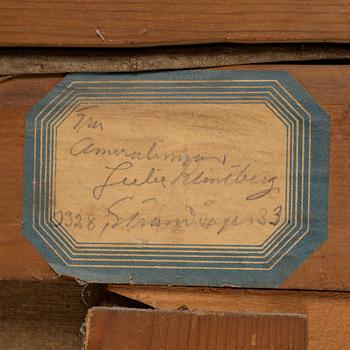 Fru
Amiralinnan
Julie Klintberg
Strandvägen 33